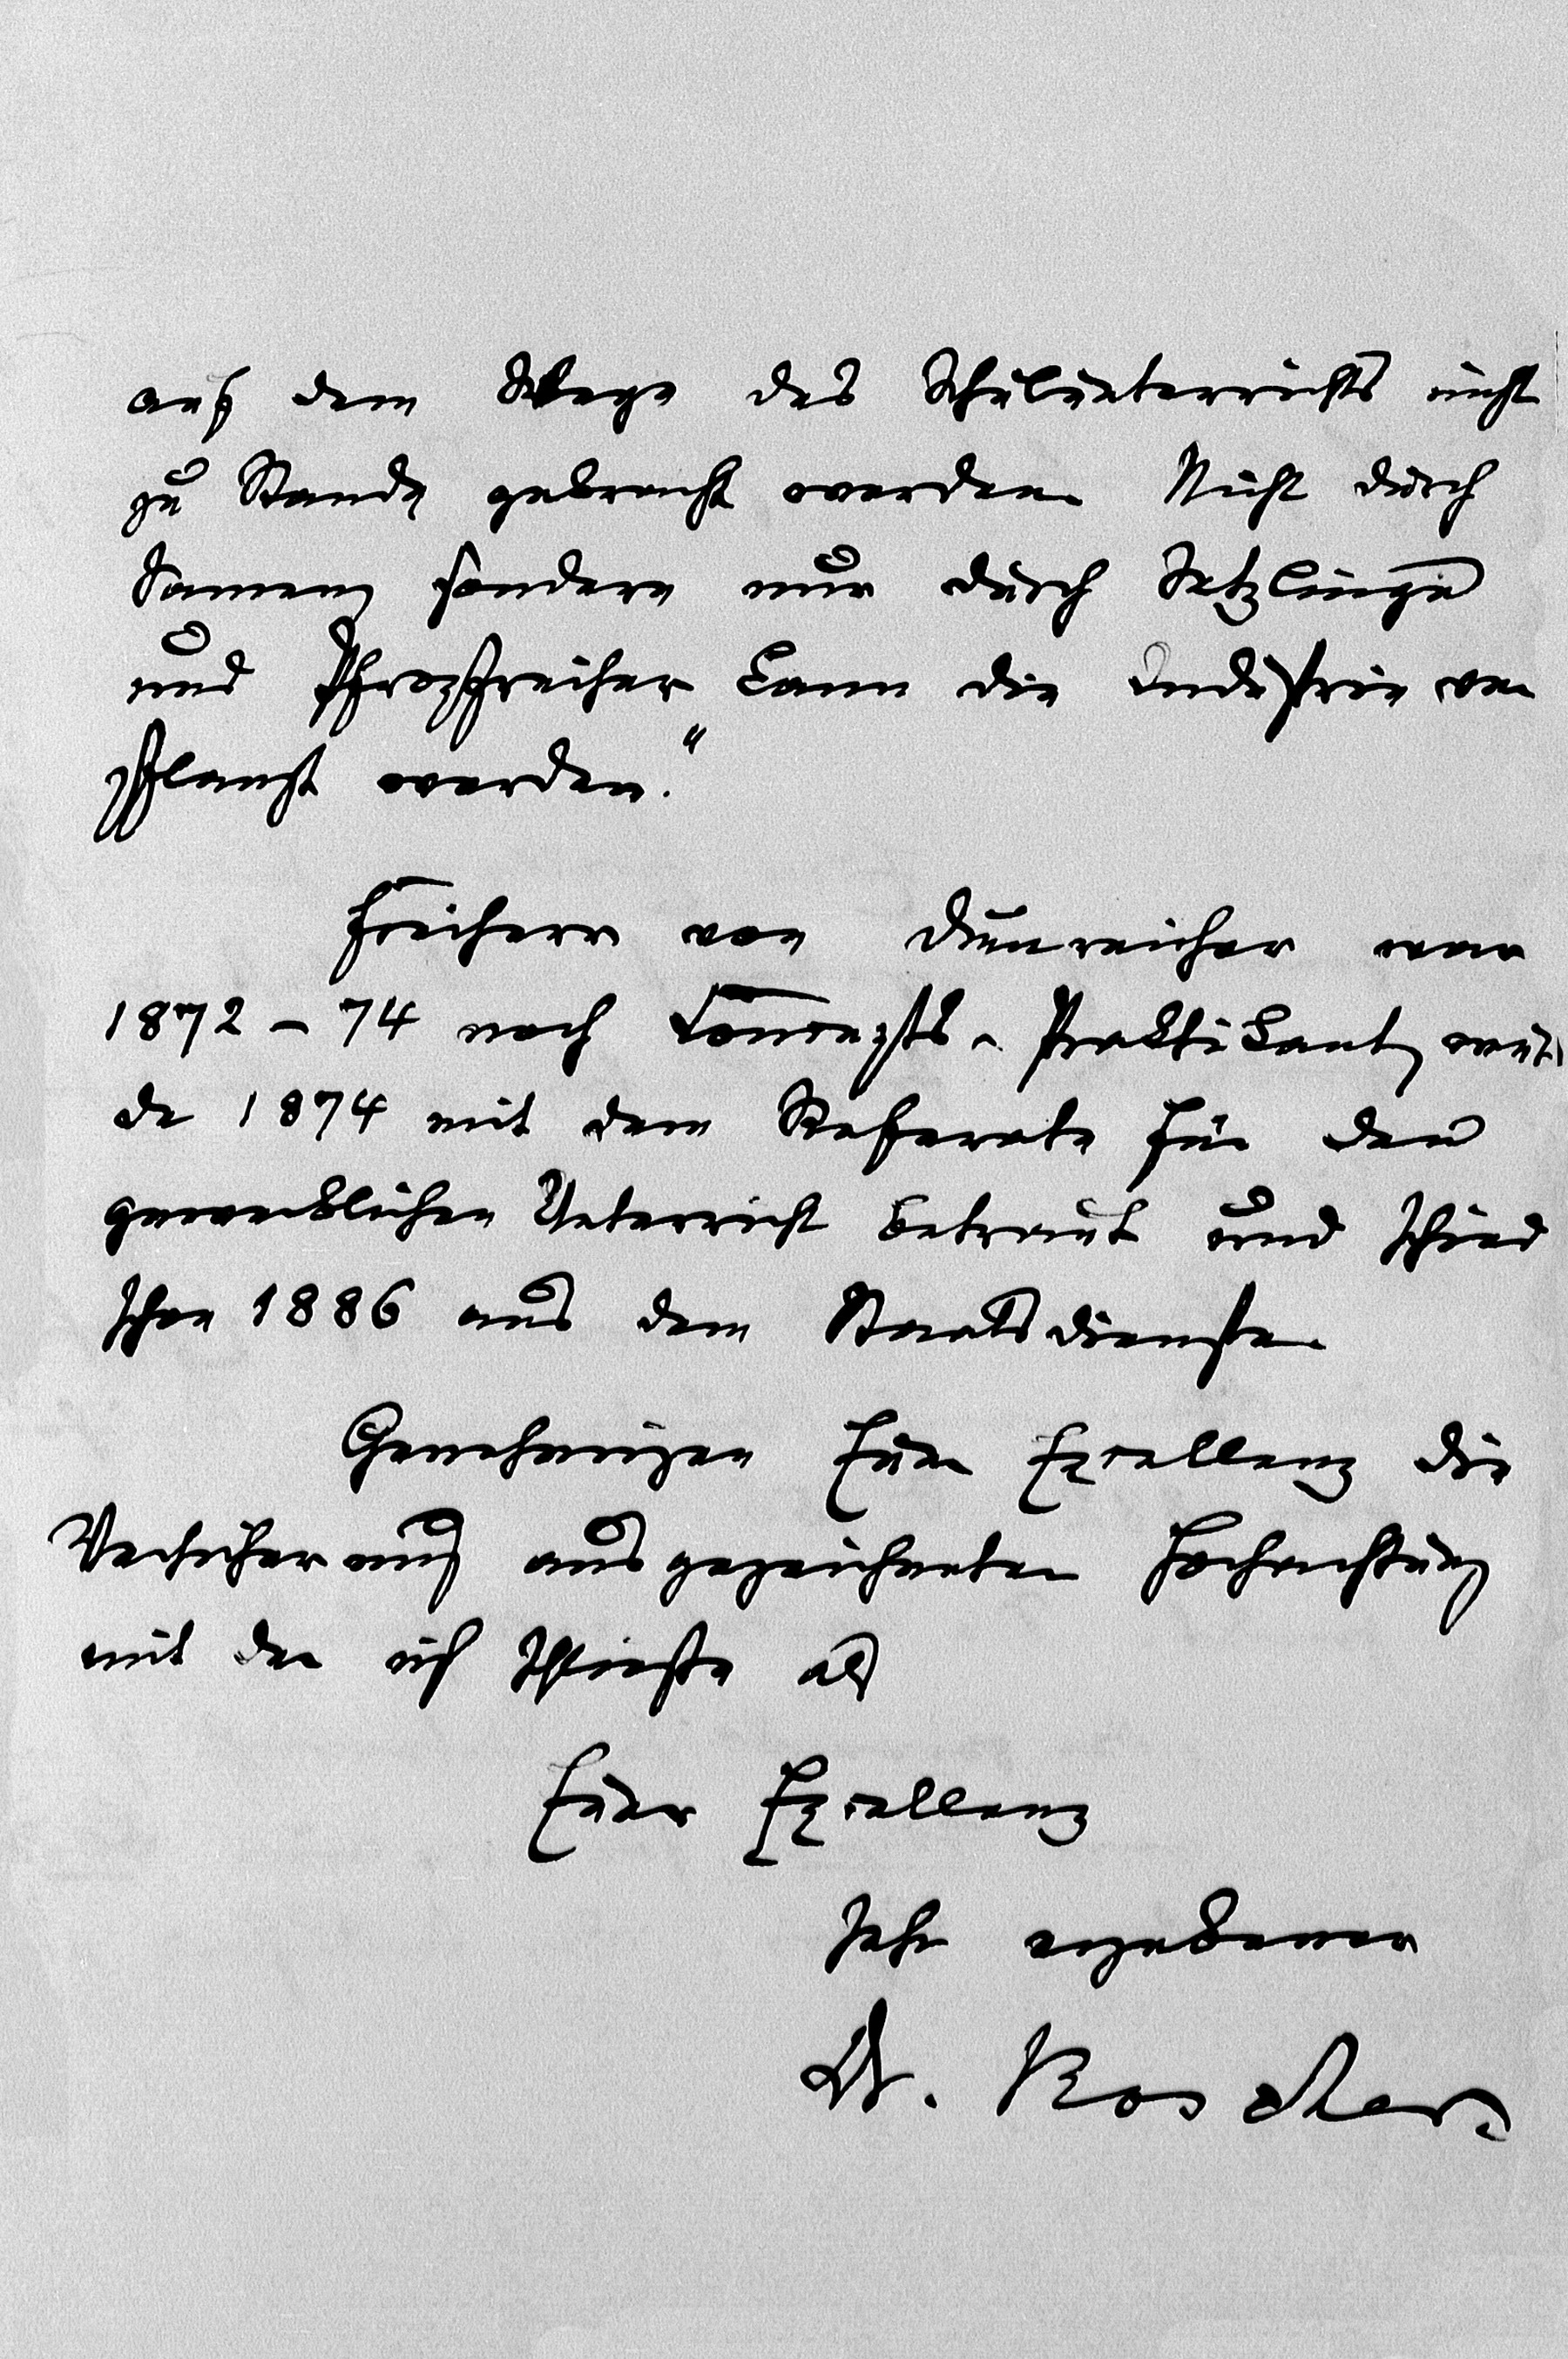 auf dem Wege des Schulunterrichts nicht
zu Stande gebracht werden. Nicht durch
Samen, sondern nur durch Setzlinge
und Pfropfreiser kann die Industrie ver
pflanzt werden."
Freiherr von Dumreicher war
1872 - 74 noch Koncepts - Praktikant, wur
de 1874 mit dem Referate für den
gewerblichen Unterricht betraut und schied
schon 1886 aus dem Staatsdienste.
Genehmigen Euer Excellenz die
Versicherung ausgezeichneter Hochachtung
mit der ich schließe als
Euer Excellenz
sehr ergebener
Dr. Roscher.